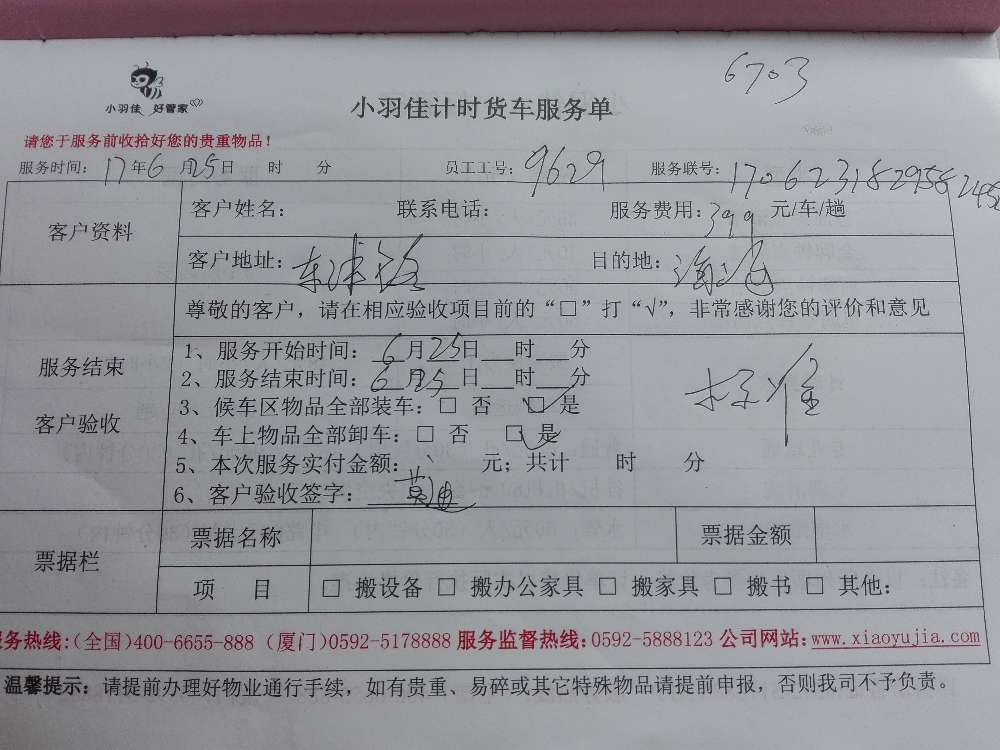 6703
小羽佳 好管家
小羽佳计时货车服务单
请您于服务前收拾好您的贵重物品！
服务时间：17年6月25日 时 分 员工工号：9629 服务联号：17062318295824
客户资料
客户姓名： 联系电话： 服务费用：399元/车/趟
客户地址：东浦路 目的地：海沧
服务结束
客户验收
尊敬的客户，请在相应验收项目前的“□”打“√”，非常感谢您的评价和意见
1、服务开始时间：6月25日 时 分
2、服务结束时间：6月25日 时 分
3、候车区物品全部装车：□ 否 ☑ 是
4、车上物品全部卸车：□ 否 ☑ 是
5、本次服务实付金额： 元；共计 时 分
6、客户验收签字：
票据栏
票据名称 票据金额
项 目 □ 搬设备 □ 搬办公家具 □ 搬家具 □ 搬书 □ 其他：
务热线：(全国)400-6655-888 (厦门)0592-5178888 服务监督热线：0592-5888123 公司网站：www.xiaoyujia.com
温馨提示：请提前办理好物业通行手续，如有贵重、易碎或其它特殊物品请提前申报，否则我司不予负责。